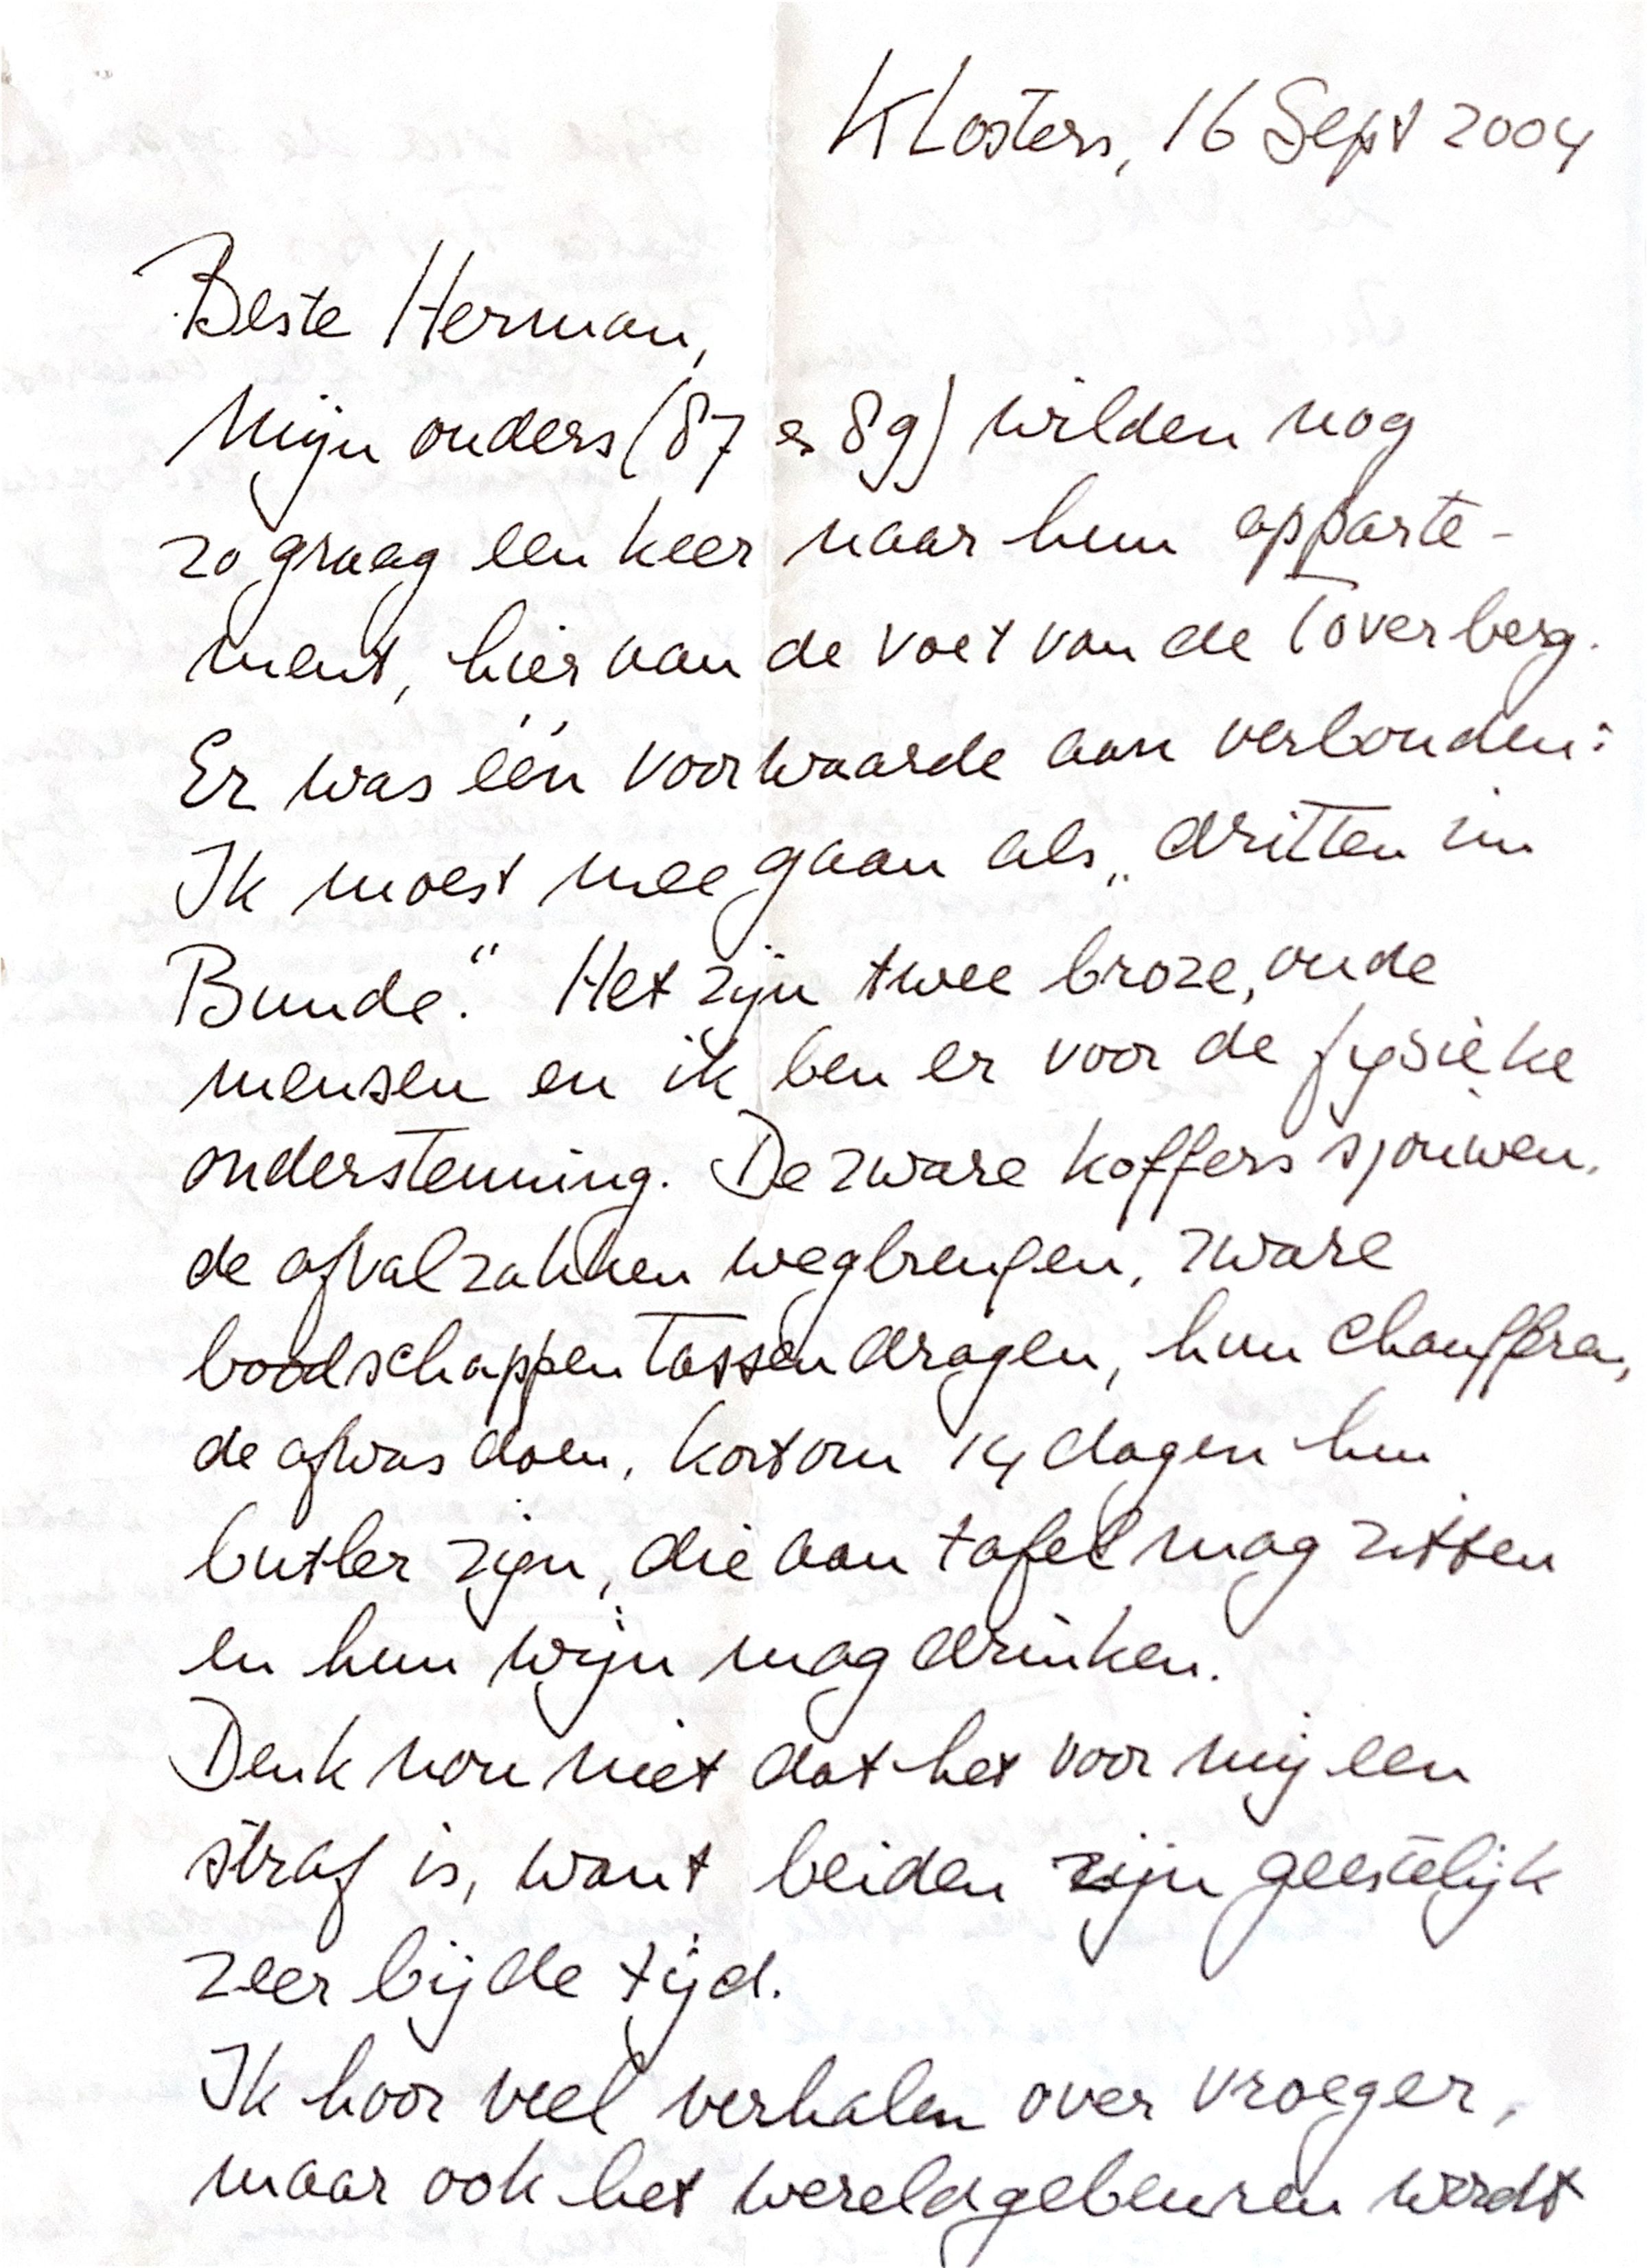 Klosters, 16 Sept 2004
Beste Herman,
Mijn ouders (87 en 89) wilden nog
zo graag een keer naar hun apparte-
ment, hier aan de voet van de Toverberg.
Er was één voorwaarde aan verbonden:
Ik moest mee gaan als „dritten im
Bunde." Het zijn twee broze, oude
mensen en ik ben er voor de fysieke
ondersteuning. De zware koffers sjouwen,
de afvalzakken wegbrengen, zware
boodschappentassen dragen, hun chaufferen,
de afwas doen, kortom 14 dagen hun
butler zijn, die aan tafel mag zitten
en hun wijn mag drinken.
Denk nou niet dat het voor mij een
straf is, want beiden zijn geestelijk
zeer bij de tijd.
Ik hoor veel verhalen over vroeger,
maar ook het wereldgebeuren wordt